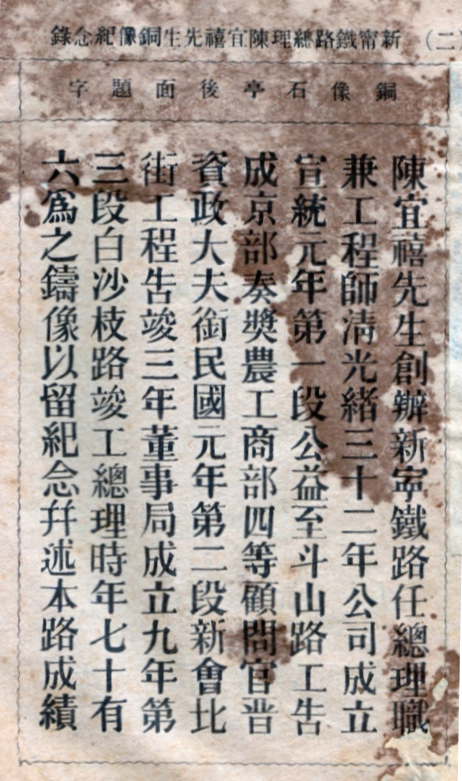 (二) 新甯鐵路總理陳宜禧先生銅像紀念錄
銅像石亭後面題字
陳宜禧先生創辦新寧鐵路任總理職
兼工程師清光緒三十二年公司成立
宣統元年第一段公益至斗山路工告
成京部奏獎農工商部四等顧問官晋
資政大夫銜民國元年第二段新會北
街工程告竣三年董事局成立九年第
三段白沙枝路竣工總理時年七十有
六爲之鑄像以留紀念幷述本路成績